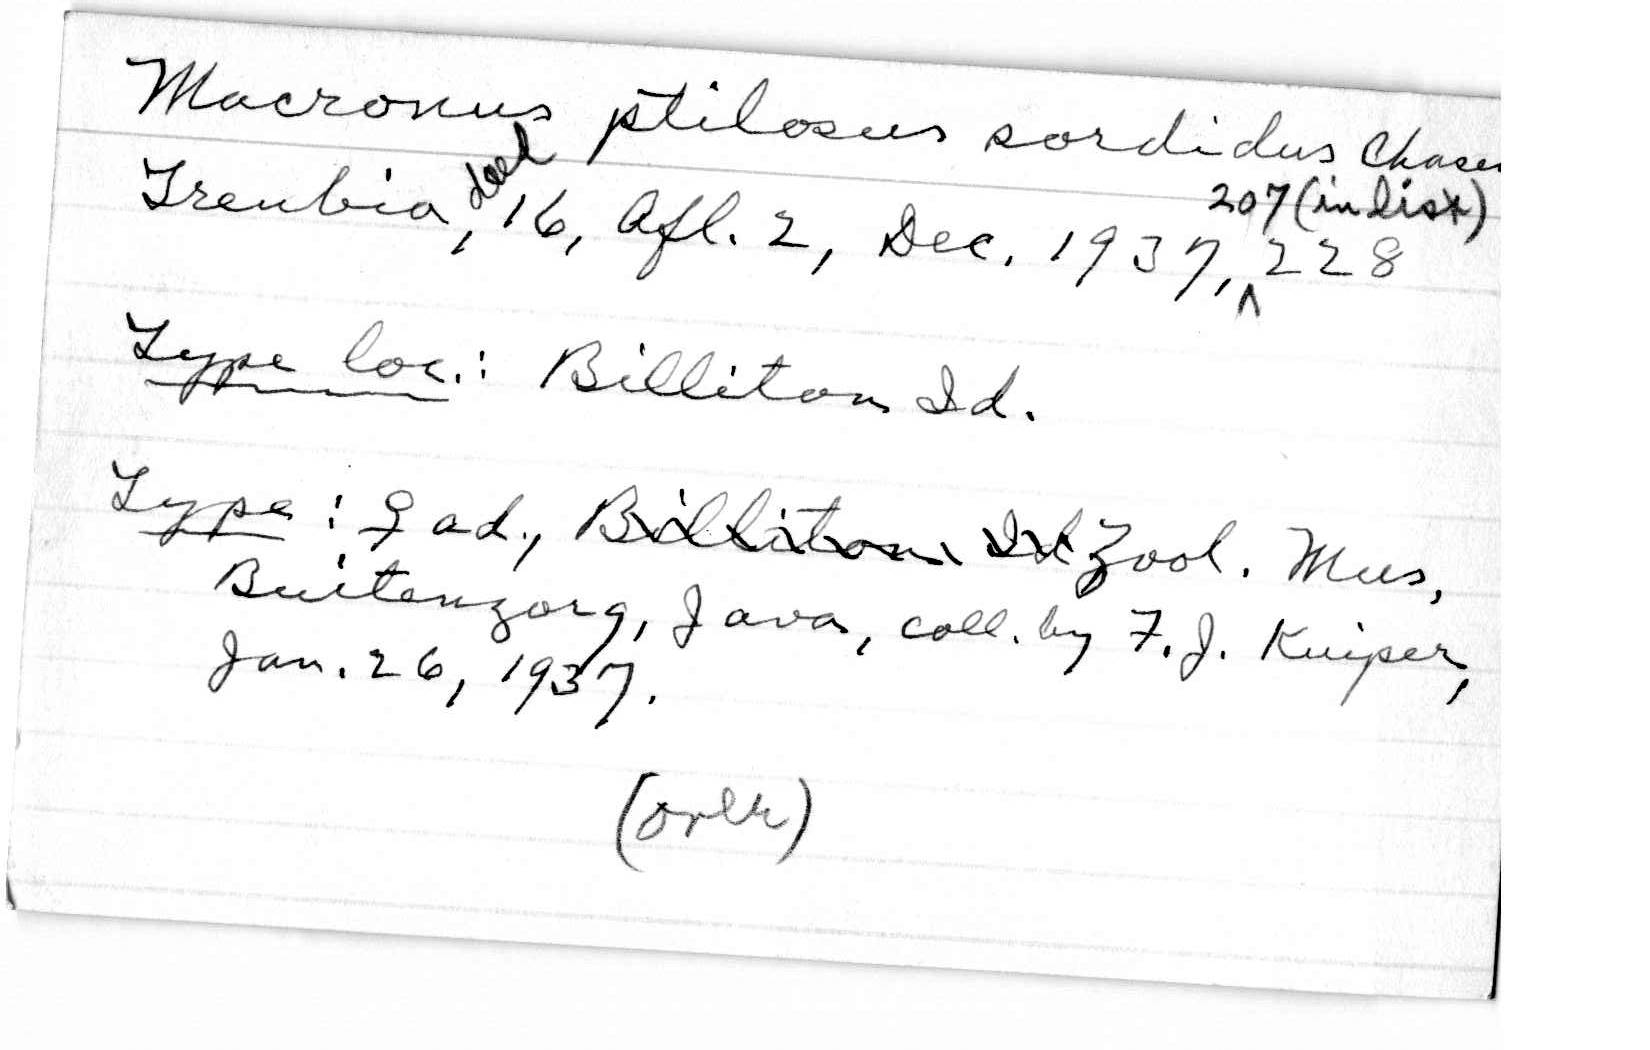 Macronus ptilosus sordidus Chasen
Treubia, deel 16, Afl. 2, Dec. 1937, 207 (in list) 228
Type loc.: Billiton Id.
Type: ♀ ad., Billiton Id Zool. Mus,
Buitenzorg, Java, coll. by F. J. Kuiper,
Jan. 26, 1937.
(over)